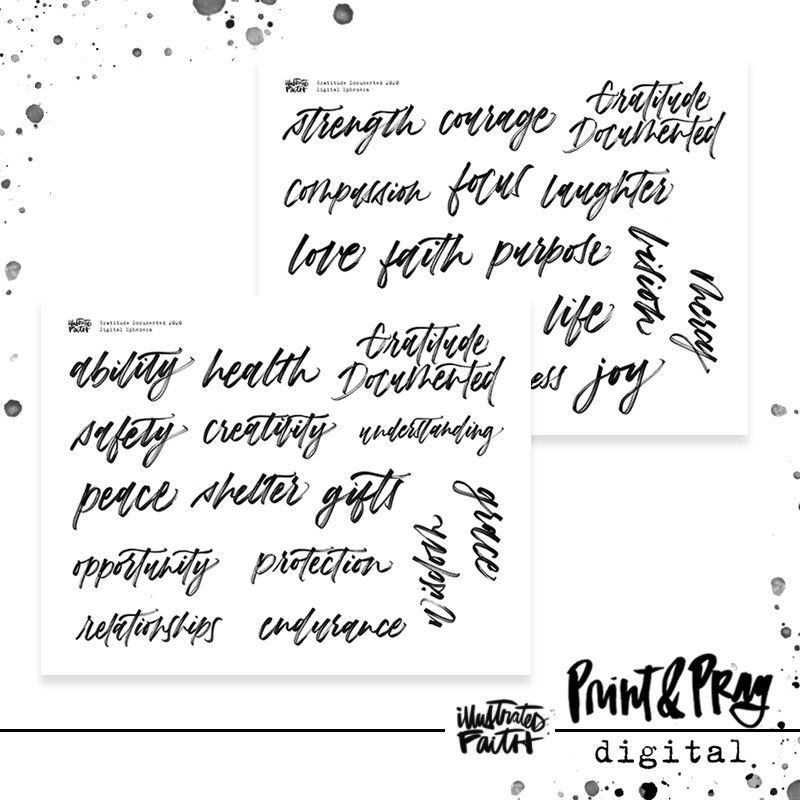 illustrated FAITH
Gratitude Documented 2020
Digital Ephemera
strength courage Gratitude Documented
compassion focus laughter
love faith purpose vision mercy
life
ess joy
illustrated FAITH
Gratitude Documented 2020
Digital Ephemera
ability health Gratitude Documented
safety creativity understanding
peace shelter gifts grace
opportunity protection wisdom
relationships endurance
Print & Pray
illustrated FAITH
digital